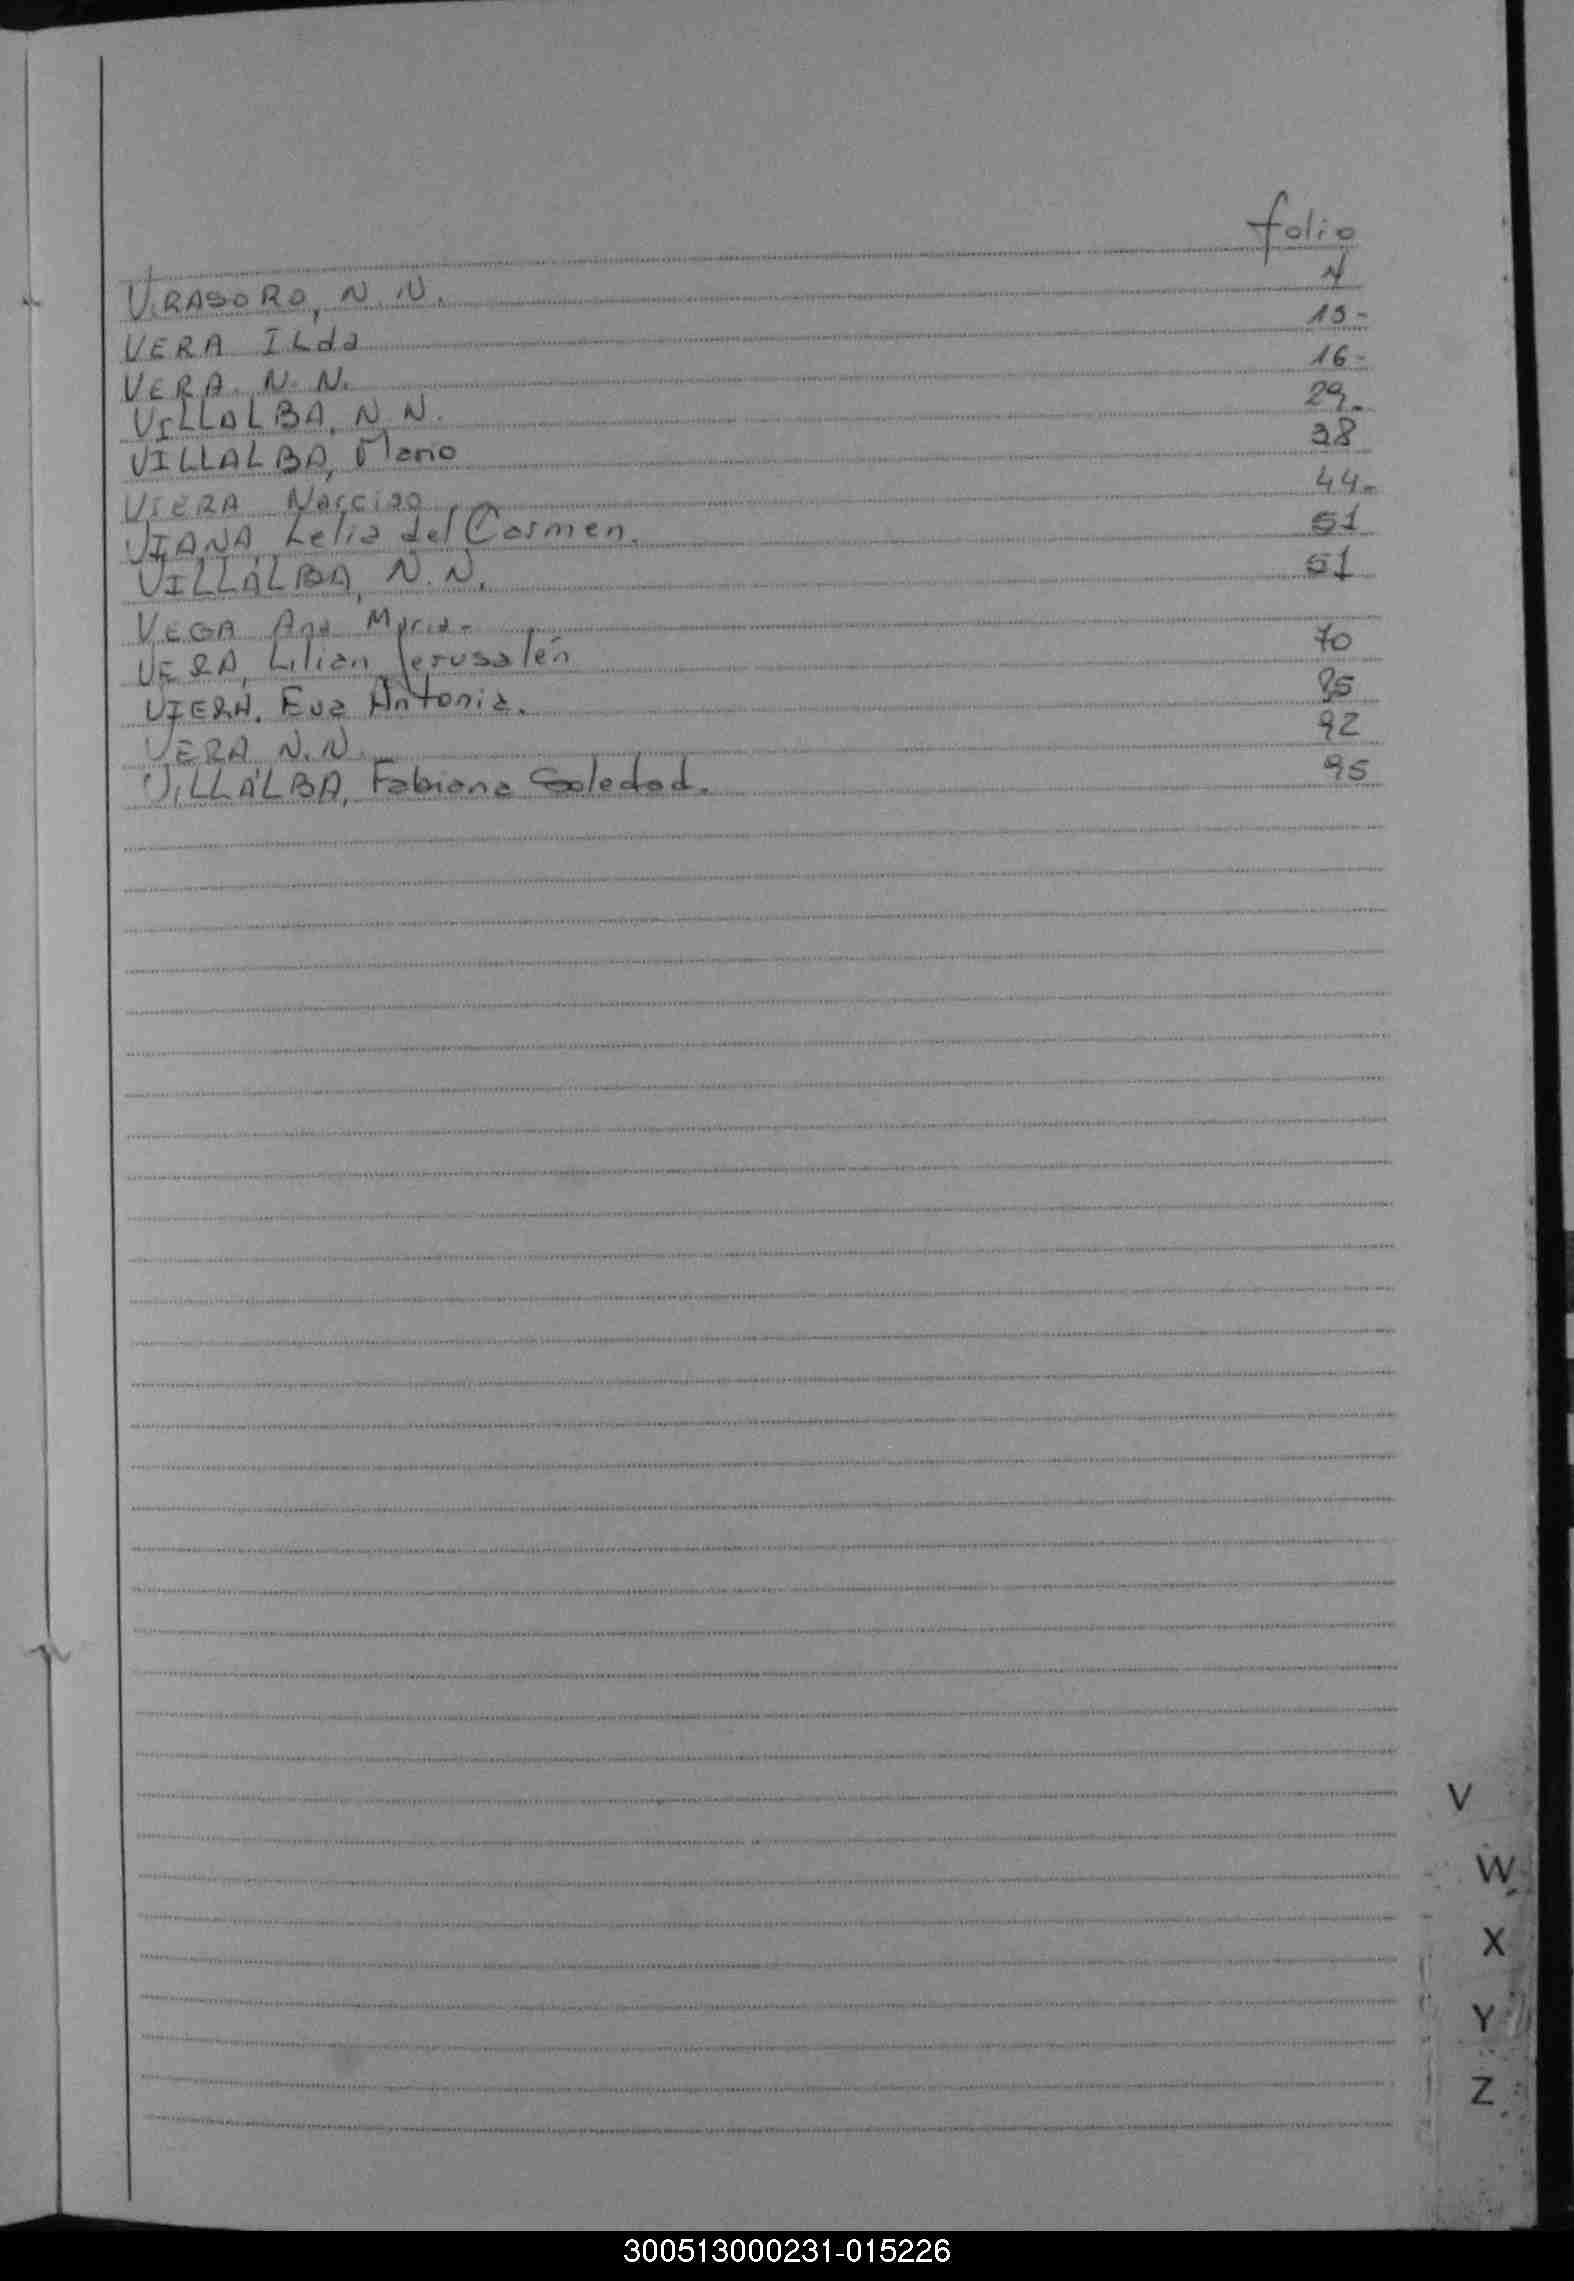 folio
VIRASORO, N. N. 4
VERA ILda 15-
VERA. N. N. 16-
VILLALBA, N. N. 29.
VILLALBA, Mario 38
VIERA Narciso 44-
VIANA, Lelia del Carmen. 51
VILLALBA, N. N. 51
VEGA Ana Maria-
VERA, Lilian Jerusalén 70
VIERA, Eva Antonia. 85
VERA N. N. 92
VILLALBA, Fabiana Soledad. 95
V
W
X
Y
Z
300513000231-015226